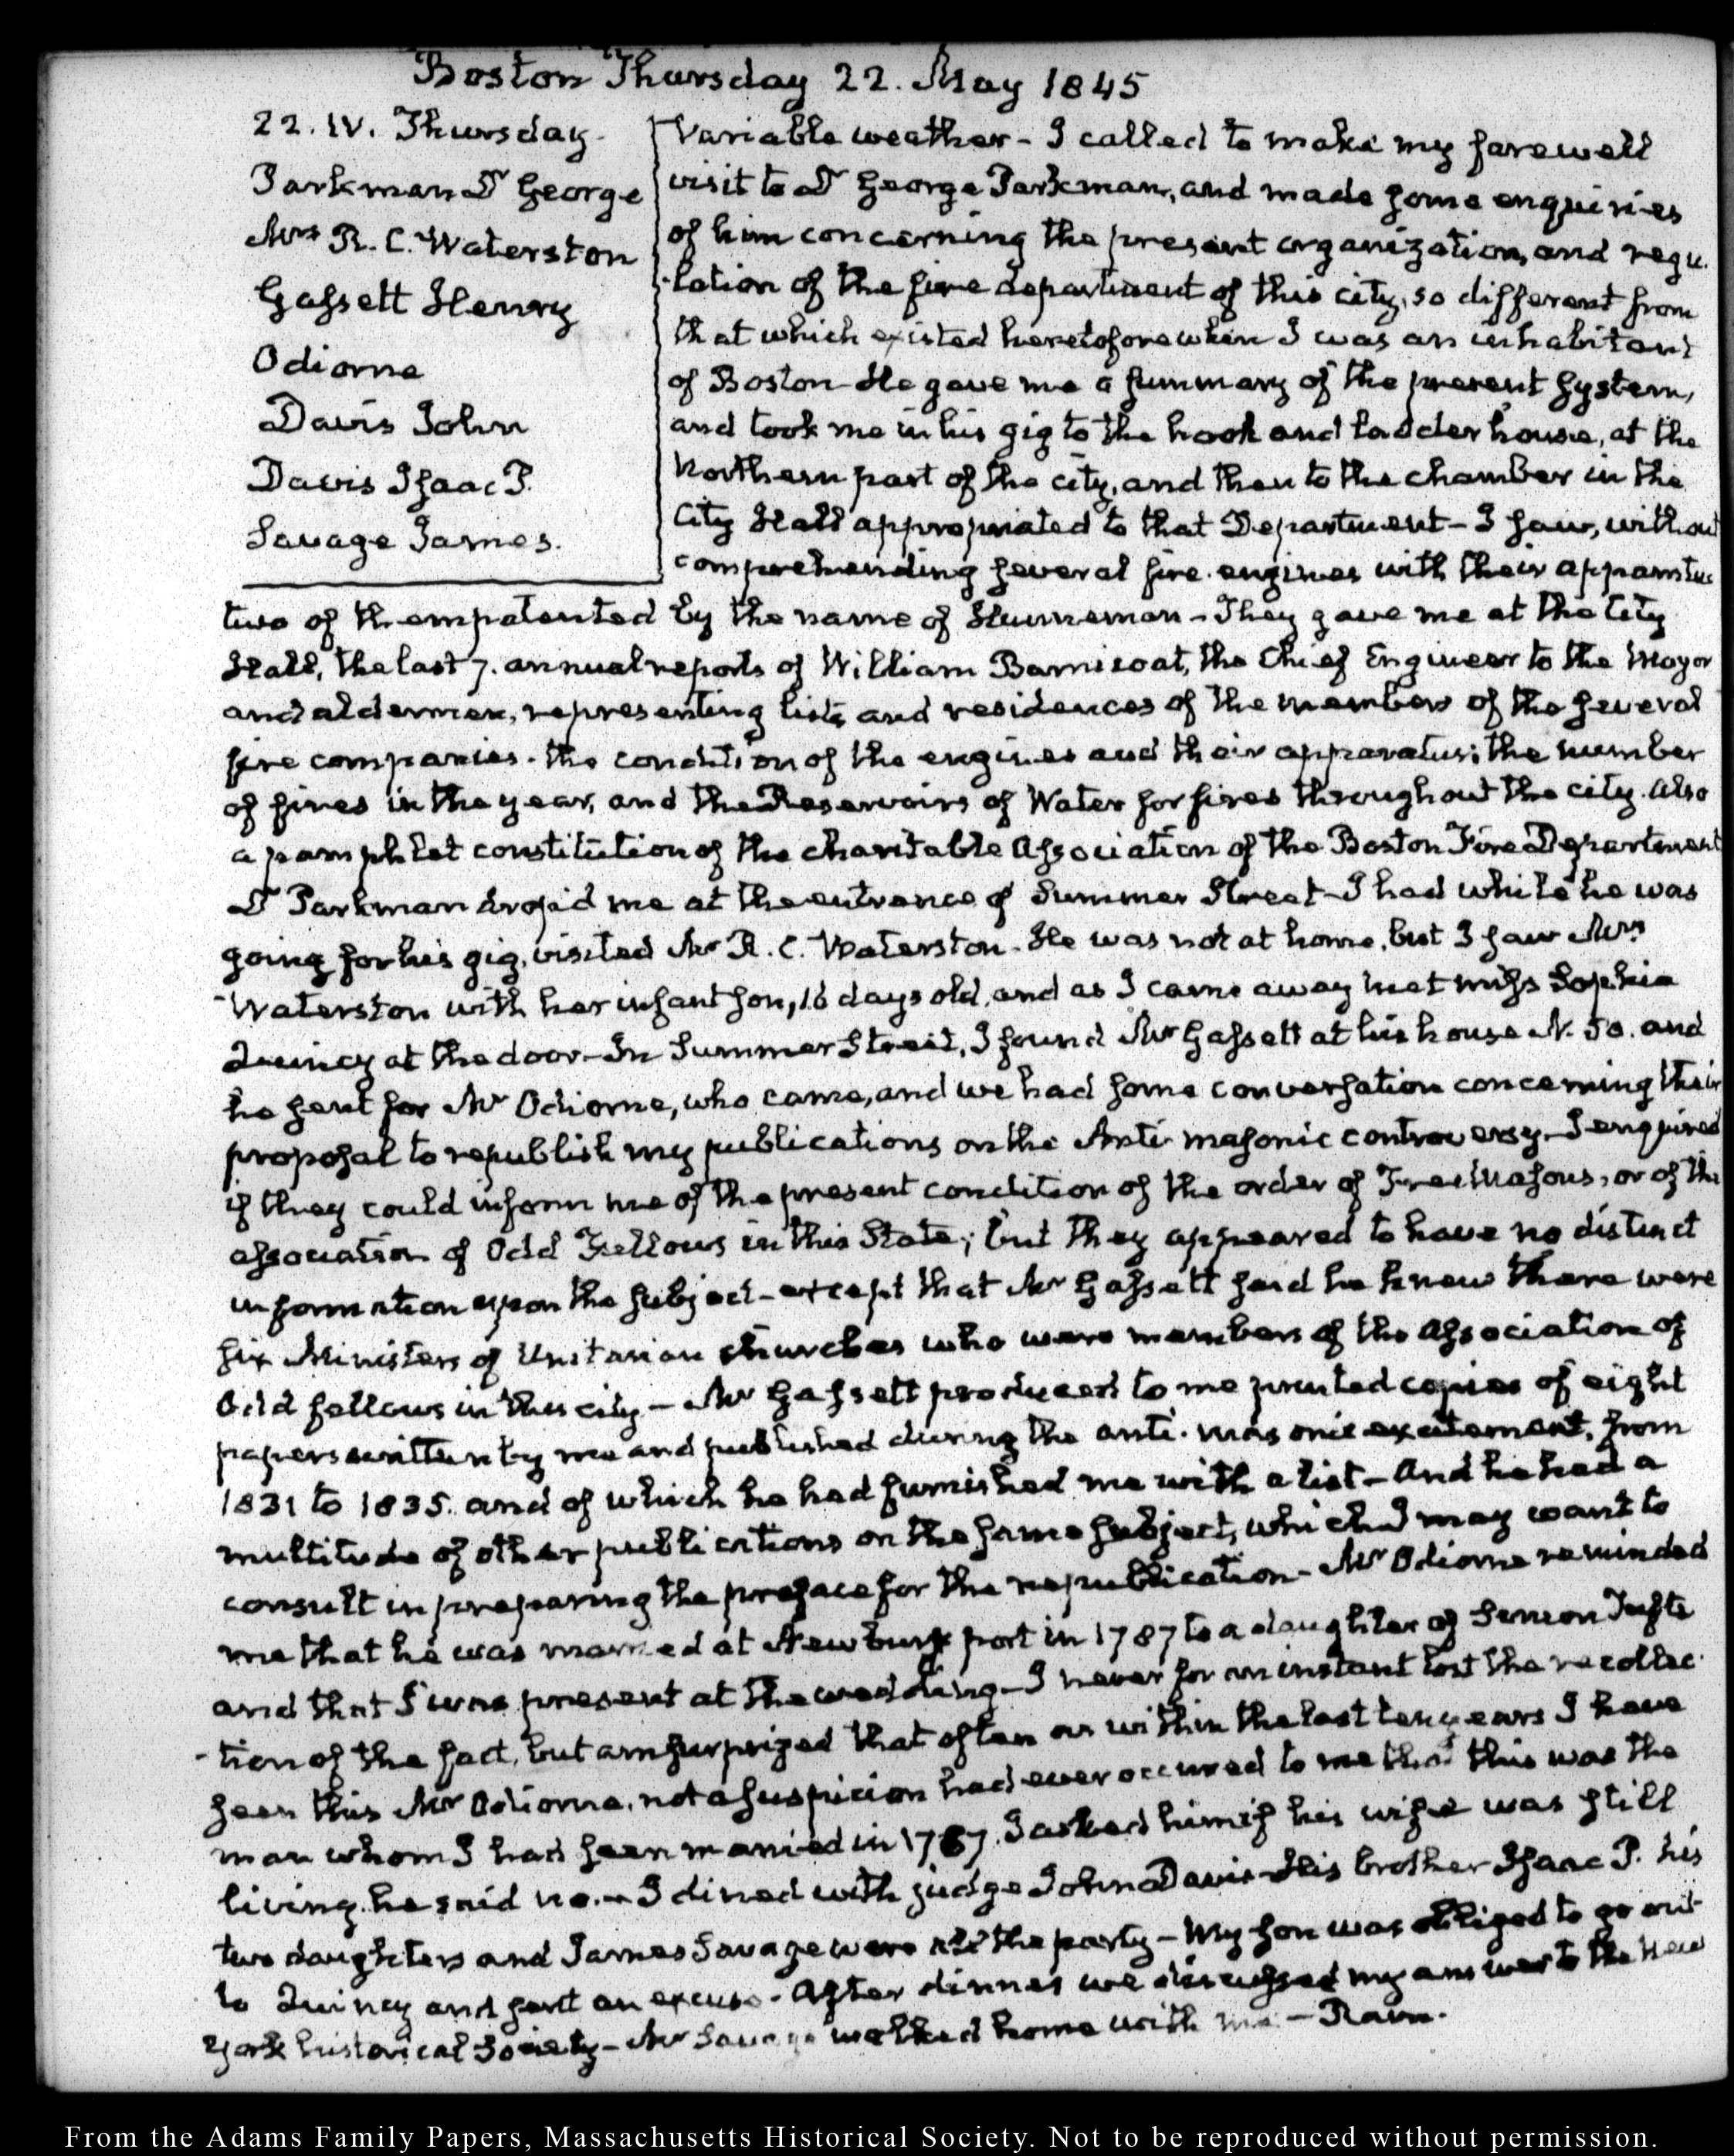 Boston Thursday 22. May 1845
22. IV. Thursday.
Parkman Dr George
Mrs R. C. Waterston
Gassett Henry
Odiorne
Davis John
Davis Isaac P.
Savage James.
Variable weather - I called to make my farewell
visit to Dr George Parkman, and made some enquiries
of him concerning the present organization, and regu-
-lation of the fire department of this city, so different from
that which existed heretofore when I was an inhabitant
of Boston - He gave me a summary of the present system,
and took me in his gig to the hook and ladder house, at the
Northern part of the city, and then to the chamber in the
City Hall appropriated to that Department - I saw, without
comprehending several fire engines with their apparatus
two of them patented by the name of Hunneman - They gave me at the City
Hall, the last 7. annual reports of William Barnicoat, the Chief Engineer to the Mayor
and aldermen, representing lists and residences of the members of the several
fire companies. the condition of the engines and their apparatus; the number
of fires in the year, and the Reservoirs of Water for fires throughout the city. also
a pamphlet constitution of the charitable Association of the Boston Fire Department
Dr Parkman drop'd me at the entrance of Summer Street - I had while he was
going for his gig, visited Mr R. C. Waterston. He was not at home, but I saw Mrs
Waterston with her infant son, 16 days old, and as I came away met miss Sophia
Quincy at the door - In Summer Street, I found Mr Gassett at his house N. 50. and
he sent for Mr Odiorne, who came, and we had some conversation concerning their
proposal to republish my publications on the Anti-masonic controversy - I enquired
if they could inform me of the present condition of the order of Free Masons, or of the
association of Odd Fellows in this State; but they appeared to have no distinct
information upon the subject - except that Mr Gassett said he knew there were
six Ministers of Unitarian churches who were members of the Association of
Odd fellows in this city - Mr Gassett produced to me printed copies of eight
papers written by me and published during the anti-masonic excitement, from
1831 to 1835. and of which he had furnished me with a list - And he had a
multitude of other publications on the same subject, which I may want to
consult in preparing the preface for the republication - Mr Odiorne reminded
me that he was married at Newburyport in 1787 to a daughter of Simeon Tufts
and that I was present at the wedding - I never for an instant lost the recollec-
-tion of the fact, but am surprized that often as within the last ten years I have
seen this Mr Odiorne, not a suspicion had ever occurred to me that this was the
man whom I had seen married in 1787. I asked him if his wife was still
living. he said no. - I dined with judge John Davis - His brother Isaac P. his
two daughters and James Savage were all the party - My son was obliged to go out
to Quincy and sent an excuse. After dinner we discussed my answer to the New
York historical Society - Mr Savage walked home with me - Rain.
From the Adams Family Papers, Massachusetts Historical Society. Not to be reproduced without permission.